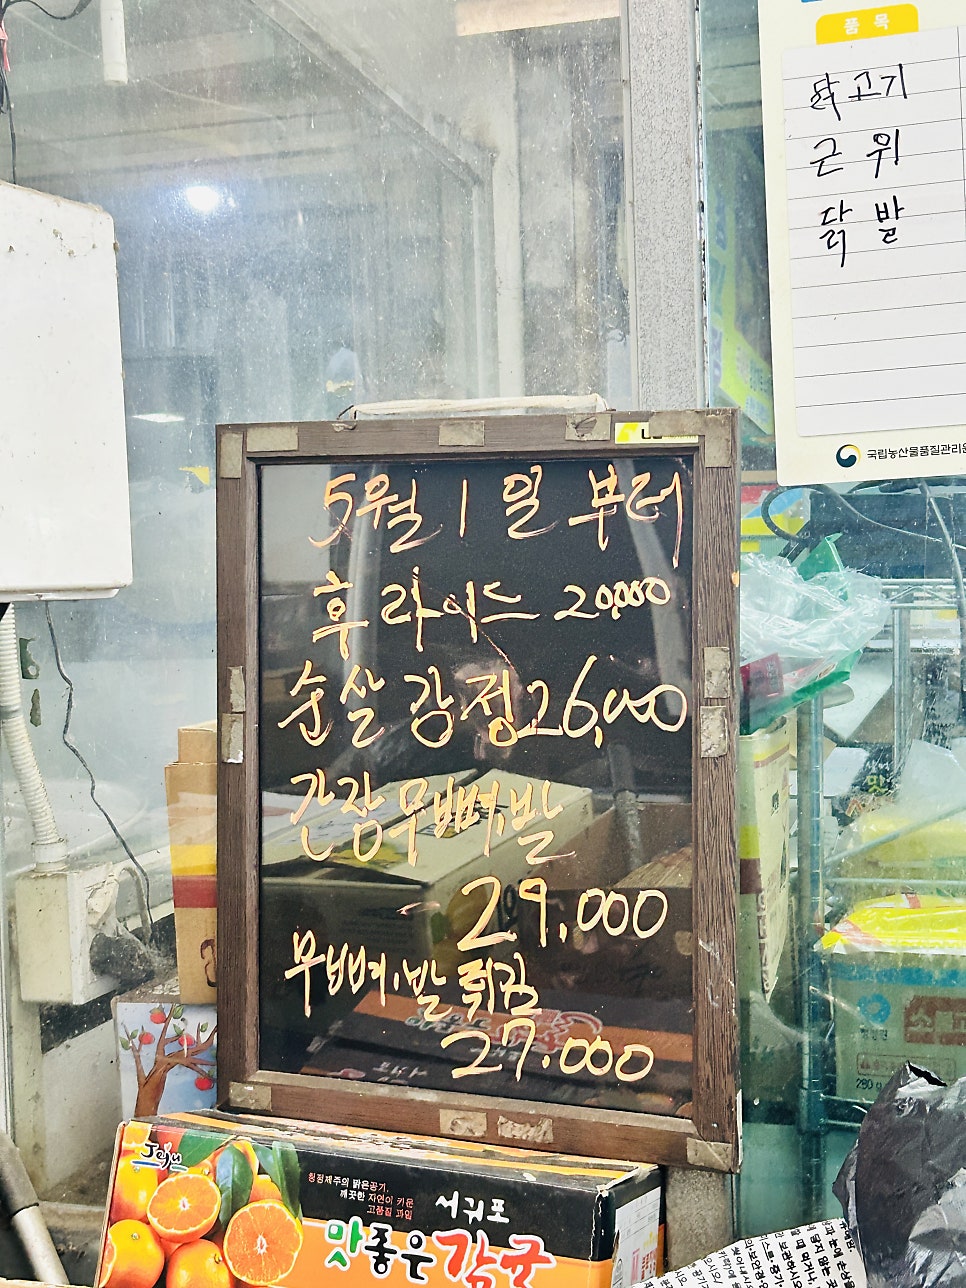 품 목
닭고기
근 위
닭 발
국립농산물품질관리원
5월 1일 부터
후라이드 20,000
순살 강정 26,000
간장무뼈,발
29,000
무뼈,발튀김
27.000
Jeju
청정제주의 맑은공기,
깨끗한 자연이 키운
고품질 과일
서귀포
맛좋은감귤